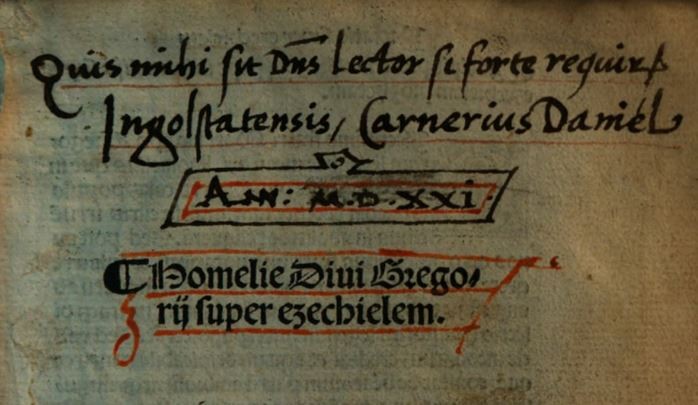 Quis mihi sit Dn̄s lector si forte requir
Ingolstatensis, Carnerius Daniel
AN: M.D.XXI.
Homelie Diui Grego⸗
rij super ezechielem.